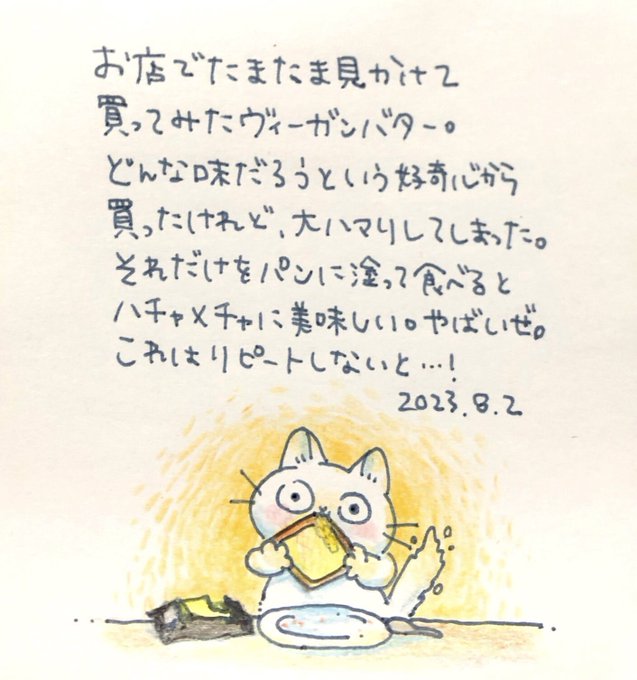 お店でたまたま見かけて
買ってみたヴィーガンバター。
どんな味だろうという好奇心から
買ったけれど、大ハマりしてしまった。
それだけをパンに塗って食べると
ハチャメチャに美味しい。やばいぜ。
これはリピートしないと…!
2023.8.2